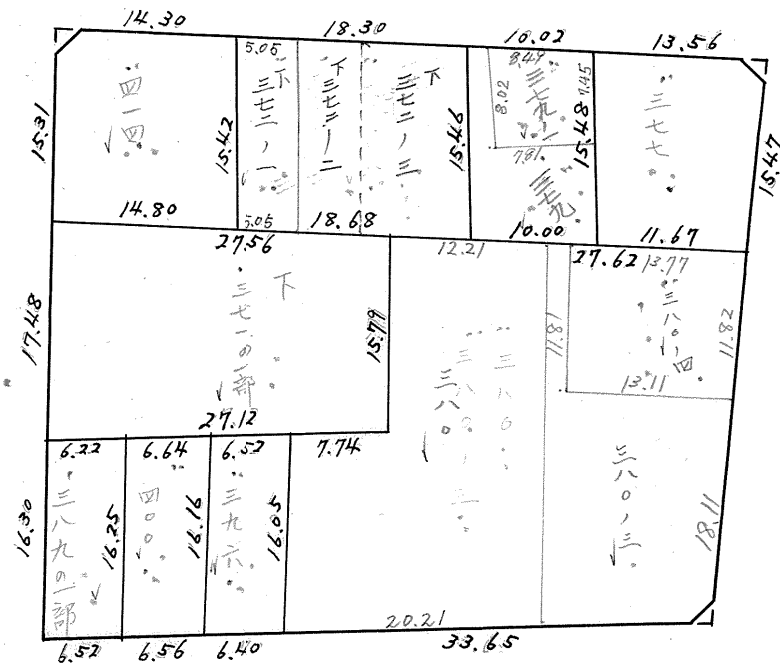 14.30
18.30
10.02
13.56
15.31
四一四
15.42
5.05
下
三七二ノ一
5.05
下
三七二ノ二
下
三七二ノ三
15.46
8.49
8.02
三七九ノ一
7.45
7.81
15.48
三七九
三七七
15.47
14.80
18.68
10.00
11.67
27.56
12.21
27.62
13.77
17.48
下
三七一の一部
15.79
11.81
三八〇ノ四
11.82
13.11
三八〇
三八〇
27.12
6.22
6.64
6.52
7.74
16.30
三八九の一部
16.25
四〇〇
16.16
三九六
16.05
三八〇ノ三
18.11
6.52
6.56
6.40
20.21
33.65